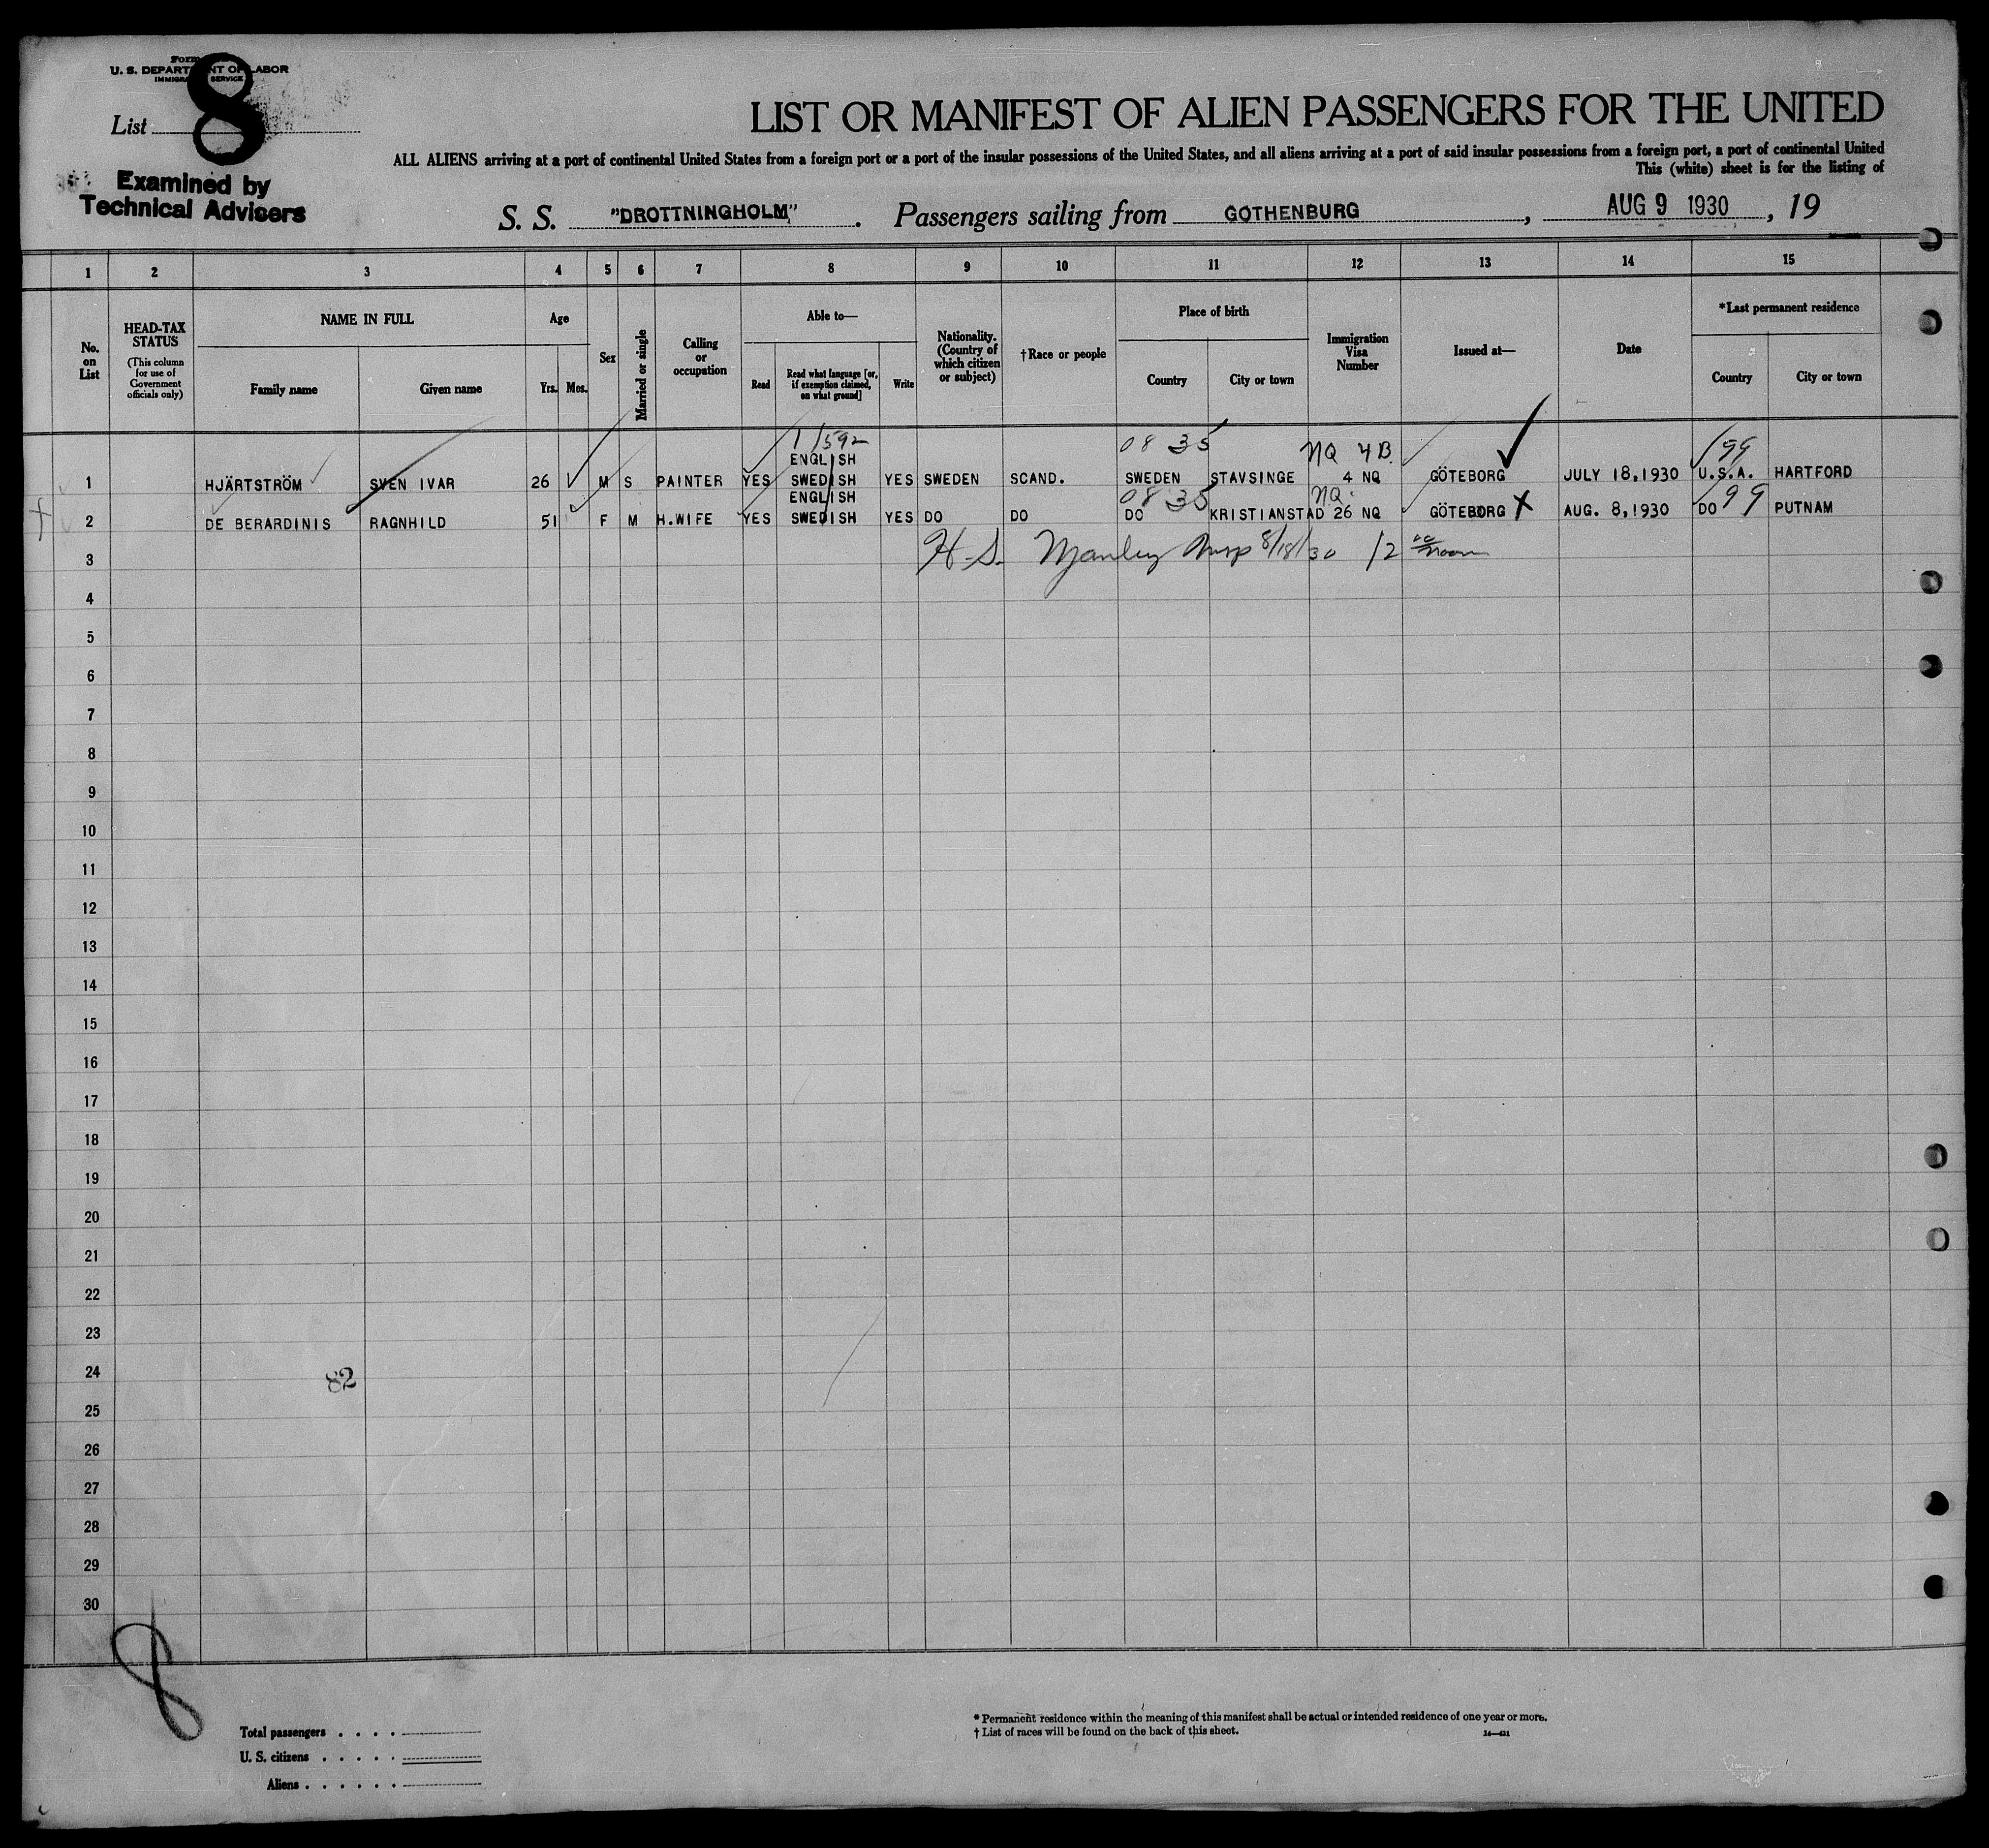 Form
U. S. DEPARTMENT OF LABOR
IMMIGRATION SERVICE
8
List
Examined by
Technical Advisers
LIST OR MANIFEST OF ALIEN PASSENGERS FOR THE UNITED
ALL ALIENS arriving at a port of continental United States from a foreign port or a port of the insular possessions of the United States, and all aliens arriving at a port of said insular possessions from a foreign port, a port of continental United
This (white) sheet is for the listing of
S. S. "DROTTNINGHOLM". Passengers sailing from GOTHENBURG, AUG 9 1930, 19
1 2 3 4 5 6 7 8 9 10 11 12 13 14 15
No. on List
HEAD-TAX STATUS
(This column for use of Government officials only)
NAME IN FULL
Family name
Given name
Age
Yrs. Mos.
Sex
Married or single
Calling or occupation
Able to—
Read
Read what language [or, if exemption claimed, on what ground]
Write
Nationality. (Country of which citizen or subject)
†Race or people
Place of birth
Country
City or town
Immigration Visa Number
Issued at—
Date
*Last permanent residence
Country
City or town
1/592 08 35 NQ 4B. 99
ENGLISH
1 HJÄRTSTRÖM SVEN IVAR 26 M S PAINTER YES SWEDISH YES SWEDEN SCAND. SWEDEN STAVSINGE 4 NQ GÖTEBORG JULY 18,1930 U.S.A. HARTFORD
ENGLISH 08 35 NQ. 99
2 DE BERARDINIS RAGNHILD 51 F M H.WIFE YES SWEDISH YES DO DO DO KRISTIANSTAD 26 NQ GÖTEBORG X AUG. 8,1930 DO PUTNAM
3 H.S. Manley Insp 8/18/30 12 00 noon
4
5
6
7
8
9
10
11
12
13
14
15
16
17
18
19
20
21
22
23
24 82
25
26
27
28
29
30
8
Total passengers . . . .
U. S. citizens . . . . .
Aliens . . . . . .
* Permanent residence within the meaning of this manifest shall be actual or intended residence of one year or more.
† List of races will be found on the back of this sheet.